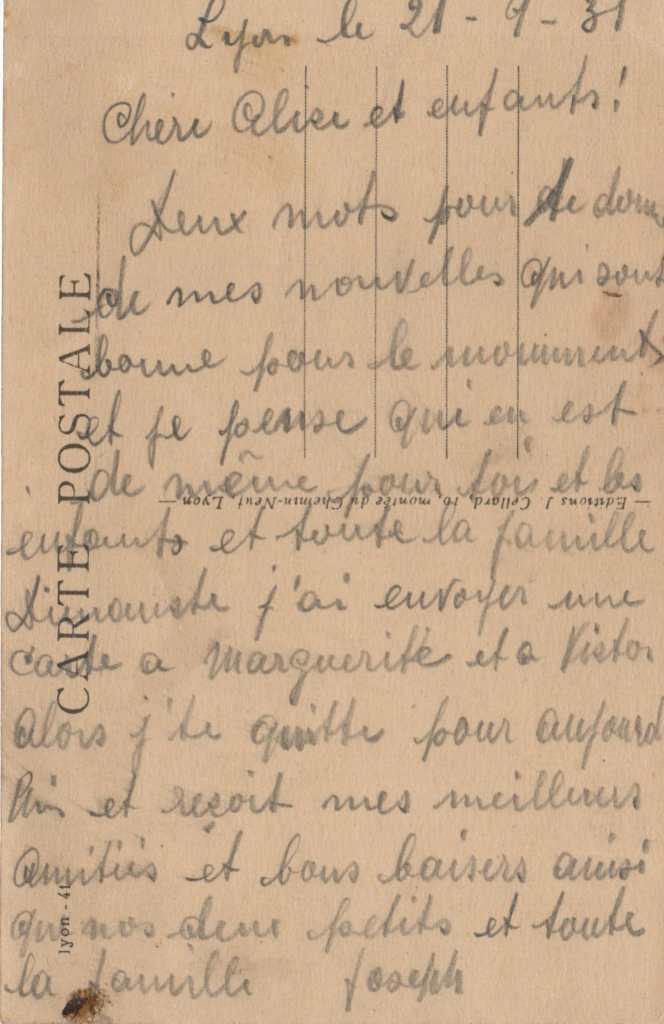 Lyon le 21 - 9 - 31
Chère Alice et enfants!
Deux mots pour te donne
de mes nouvelles qui sont
bonne pour le mouments
et je pense qui en est
de même pour toi et les
enfants et toute la famille
Dimanste j'ai envoyer une
carte a Marguerite et a Victor
alors j'te quitte pour aujourd
hui et reçoit mes meilleurs
amitiés et bons baisers ainsi
que nos deux petits et toute
la famille Joseph
CARTE POSTALE
— Editions J. Cellard, 10, montée du Chemin-Neuf Lyon —
lyon - 41